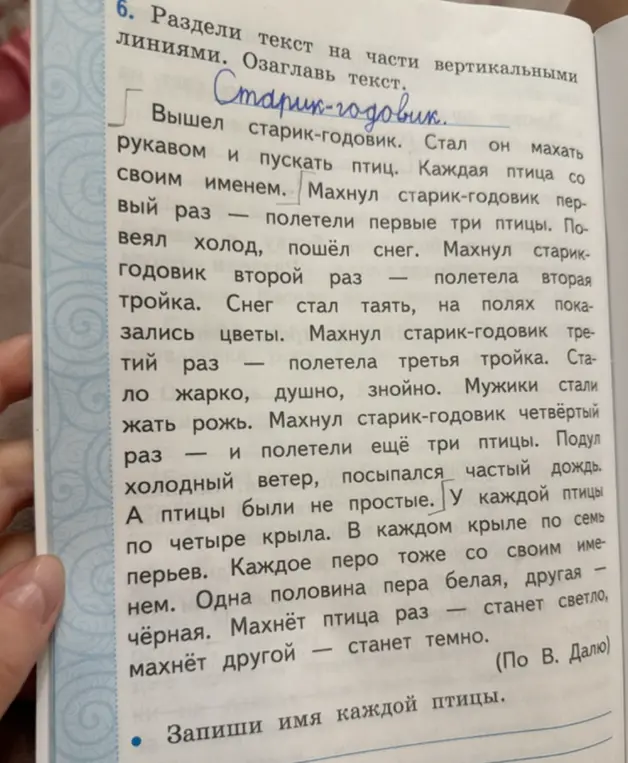 6. Раздели текст на части вертикальными
линиями. Озаглавь текст.
Старик-годовик.
Вышел старик-годовик. Стал он махать
рукавом и пускать птиц. Каждая птица со
своим именем. Махнул старик-годовик пер-
вый раз — полетели первые три птицы. По-
веял холод, пошёл снег. Махнул старик-
годовик второй раз — полетела вторая
тройка. Снег стал таять, на полях пока-
зались цветы. Махнул старик-годовик тре-
тий раз — полетела третья тройка. Ста-
ло жарко, душно, знойно. Мужики стали
жать рожь. Махнул старик-годовик четвёртый
раз — и полетели ещё три птицы. Подул
холодный ветер, посыпался частый дождь.
А птицы были не простые. У каждой птицы
по четыре крыла. В каждом крыле по семь
перьев. Каждое перо тоже со своим име-
нем. Одна половина пера белая, другая —
чёрная. Махнёт птица раз — станет светло,
махнёт другой — станет темно.
(По В. Далю)
• Запиши имя каждой птицы.